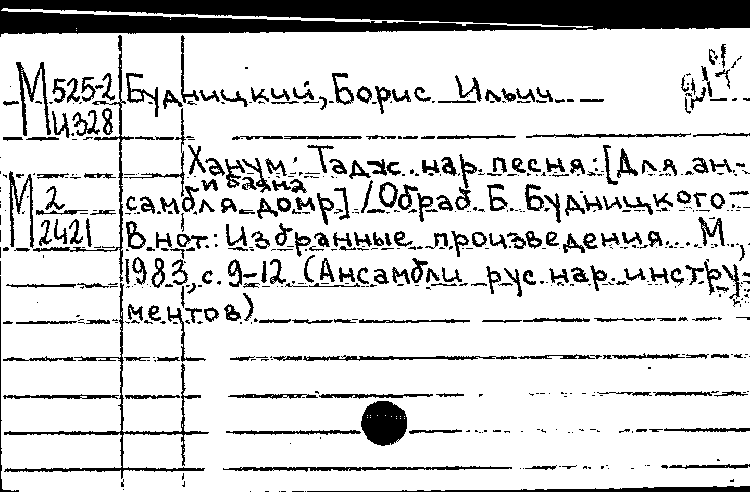 М 525-2 Будницкий, Борис Ильич
И328
Ханум: Тадж. нар. песня: [Для ан-
и баяна
М 2 самбля домр] / Обраб. Б. Будницкого. –
2421 В нот.: Избранные произведения. М.,
1983, с. 9-12. (Ансамбли рус. нар. инстру-
ментов)